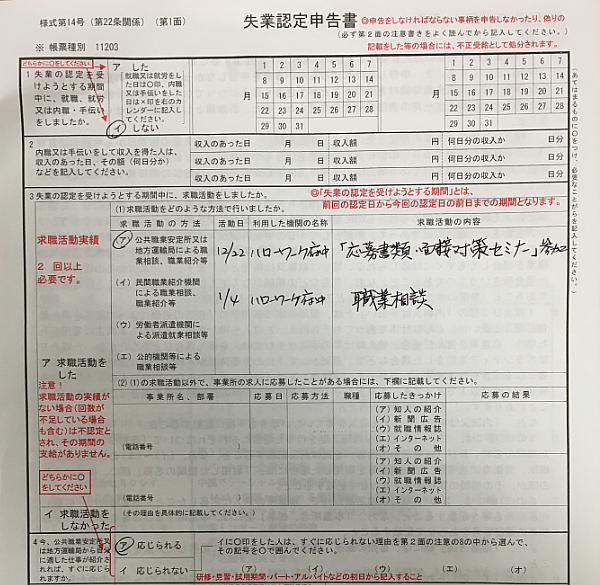 様式第14号(第22条関係)(第1面)
失業認定申告書
◎申告をしなければならない事柄を申告しなかったり、偽りの
(必ず第2面の注意書きをよく読んでから記入してください。)
記載をした等の場合には、不正受給として処分されます。
※ 帳票種別 11203
どちらかに○をしてください
1 失業の認定を受
けようとする期間
中に、就職、就労
又は内職・手伝い
をしましたか。
ア した
就職又は就労をし
た日は○印、内職
又は手伝いをした
日は×印を右のカ
レンダーに記入し
てください。
イ しない
月
1 2 3 4 5 6 7
8 9 10 11 12 13 14
15 16 17 18 19 20 21
22 23 24 25 26 27 28
29 30 31
月
1 2 3 4 5 6 7
8 9 10 11 12 13 14
15 16 17 18 19 20 21
22 23 24 25 26 27 28
29 30 31
(あてはまるものに○をつけ、必要なことがらを記入してください。)
2
内職又は手伝いをして収入を得た人は、
収入のあった日、その額(何日分か)
などを記入してください。
収入のあった日 月 日 収入額 円 何日分の収入か 日分
収入のあった日 月 日 収入額 円 何日分の収入か 日分
収入のあった日 月 日 収入額 円 何日分の収入か 日分
3 失業の認定を受けようとする期間中に、求職活動をしましたか。
◎「失業の認定を受けようとする期間」とは、
前回の認定日から今回の認定日の前日までの期間となります。
(1)求職活動をどのような方法で行いましたか。
求職活動の方法 活動日 利用した機関の名称 求職活動の内容
求職活動実績
2 回以上
必要です。
(ア)公共職業安定所又は
地方運輸局による職
業相談、職業紹介等
12/22 ハローワーク府中 「応募書類・面接対策セミナー」参加
(イ)民間職業紹介機関
による職業相談、
職業紹介等
1/4 ハローワーク府中 職業相談
(ウ)労働者派遣機関に
よる派遣就業相談等
(エ)公的機関等による
職業相談等
ア 求職活動を
した
注意!
求職活動の実績が
ない場合(回数が
不足している場合
も含む)は不認定と
され、その期間の
支給がありません。
(2)(1)の求職活動以外で、事業所の求人に応募したことがある場合には、下欄に記載してください。
事業所名、部署 応募日 応募方法 職種 応募したきっかけ 応募の結果
(電話番号 )
(ア)知人の紹介
(イ)新聞広告
(ウ)就職情報誌
(エ)インターネット
(オ)その他
(電話番号 )
(ア)知人の紹介
(イ)新聞広告
(ウ)就職情報誌
(エ)インターネット
(オ)その他
どちらかに○
をしてください
イ 求職活動を
しなかった
(その理由を具体的に記載してください。)
4 今、公共職業安定所又
は地方運輸局から自分
に適した仕事が紹介さ
れれば、すぐに応じら
れますか。
ア 応じられる
イ 応じられない
イに○印をした人は、すぐに応じられない理由を第2面の注意の8の中から選んで、
その記号を○で囲んでください。
(ア) (イ) (ウ) (エ) (オ)
研修・見習・試用期間・パート・アルバイトなどの初日から記入すること